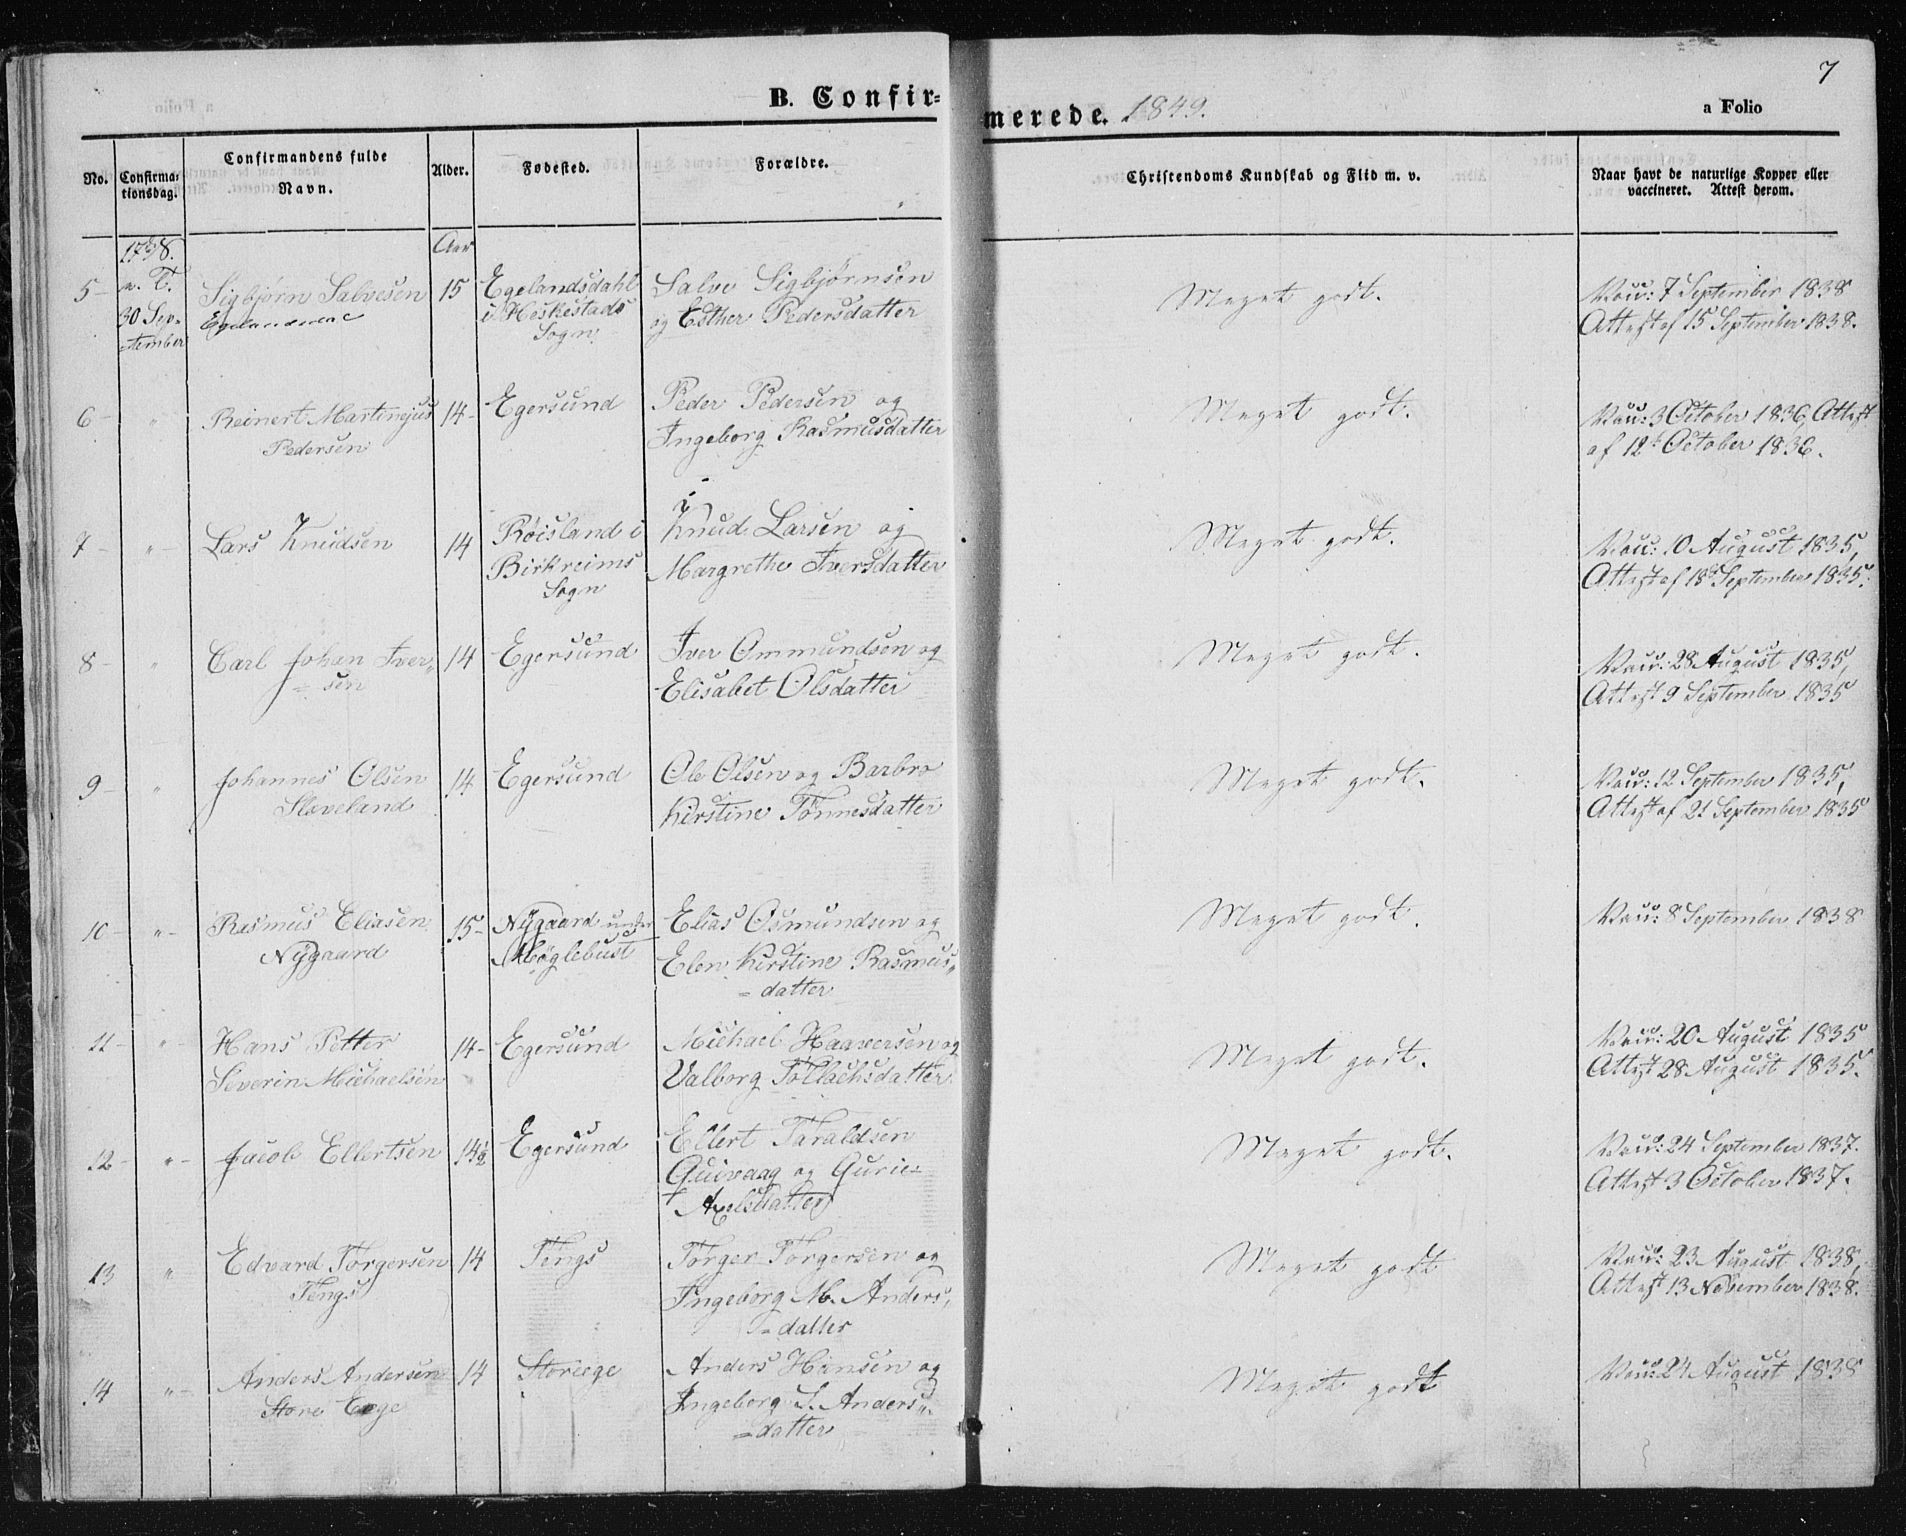 7
B. Confir=
merede. 1849.
a Folio
No.
Confirma=
tionsdag.
Confirmandens fulde
Navn.
Alder.
Fødested.
Forældre.
Christendoms Kundskab og Flid m. v.
Naar havt de naturlige Kopper eller
vaccineret. Attest derom.
Aar
5
30 Sep=
tember
Sigbjørn Salvesen
15
Egelandsdahl
i Heskestads
Sogn
Salve Sigbjørnsen
og Esther Pedersdatter
Meget godt.
Vacc: 7 September 1838
Attest af 15 September 1838.
6 "
Reinert Martinejus
Pedersen
14
Egersund
Peder Pedersen og
Ingeborg Rasmusdatter
Meget godt.
Vacc: 3 October 1836, Attest
af 12t October 1836.
7 "
Lars Knudsen
14
Røisland i
Birkreims
Sogn
Knud Larsen og
Margrethe Iversdatter
Meget godt.
Vacc: 10 August 1835,
Attest af 18t September 1835.
8 "
Carl Johan Iver=
=sen
14
Egersund
Iver Ommundsen og
Elisabet Olsdatter
Meget godt.
Vacc: 28 August 1835,
Attest 9 September 1835
9 "
Johannes Olsen
Sloveland
14
Egersund
Ole Olsen og Barbro
Kirstine Tønnesdatter
Meget godt.
Vacc: 12 September 1835,
Attest af 21 September 1835
10 "
Rasmus Eliasen
Nygaard
15
Nygaard under
Møglebust
Elias Osmundsen og
Elen Kirstine Rasmus=
=datter
Meget godt.
Vacc: 8 September 1838
11 "
Hans Petter
Severin Michaelsen
14
Egersund
Michael Haaversen og
Valborg Tollachsdatter
Meget godt.
Vacc: 20 August 1835
Attest 28 August 1835.
12 "
Jacob Ellertsen
14½
Egersund
Ellert Taraldsen
Quivaag og Gurie
Axelsdatter
Meget godt.
Vacc: 24 September 1837.
Attest 3 October 1837.
13 "
Edvard Torgersen
Tengs
14
Tengs
Torger Torgersen og
Ingeborg M. Anders=
=datter
Meget godt
Vacc: 23 August 1838,
Attest 13 November 1838.
14 "
Anders Andersen
Store Eege
14
Storeege
Anders Hansen og
Ingeborg S. Anders=
=datter
Meget godt
Vacc: 24 August 1838